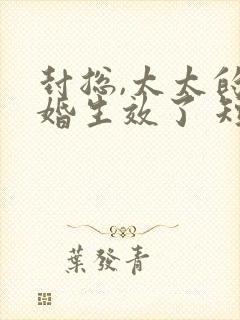 封总,太太的
婚生效了 短
葉發青